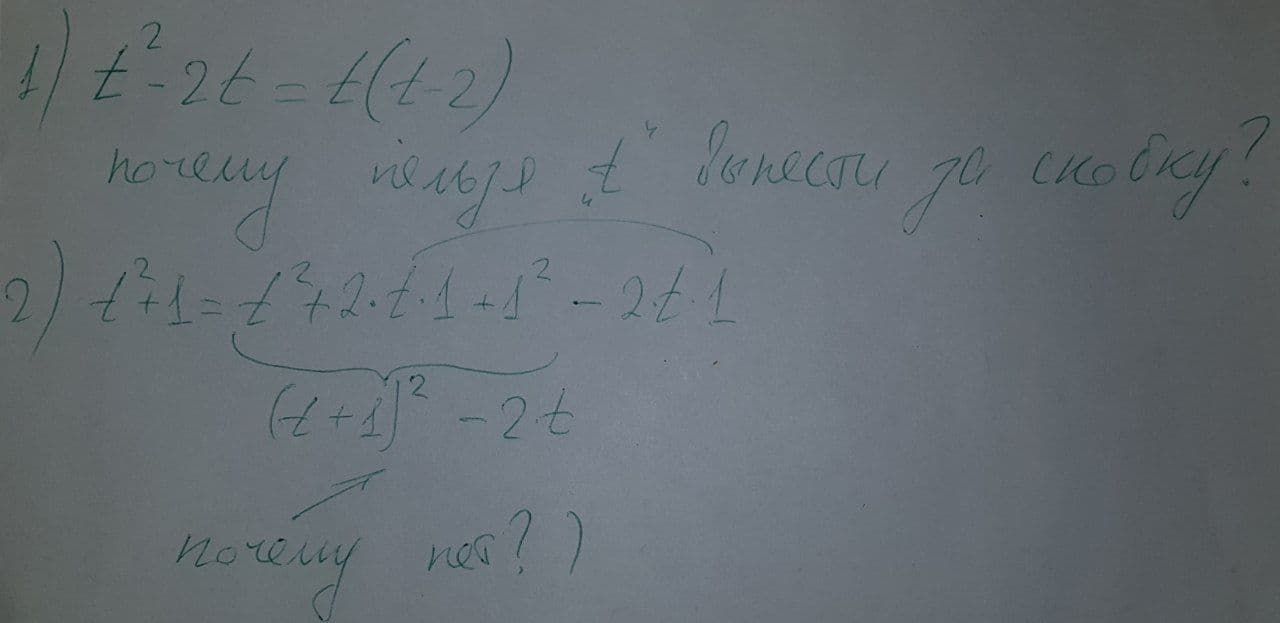 1) t² - 2t = t(t-2)
почему нельзя „t“ вынести за скобку?
2) t²+1 = t²+2·t·1+1² - 2·t·1
(t+1)² - 2t
почему нет?)